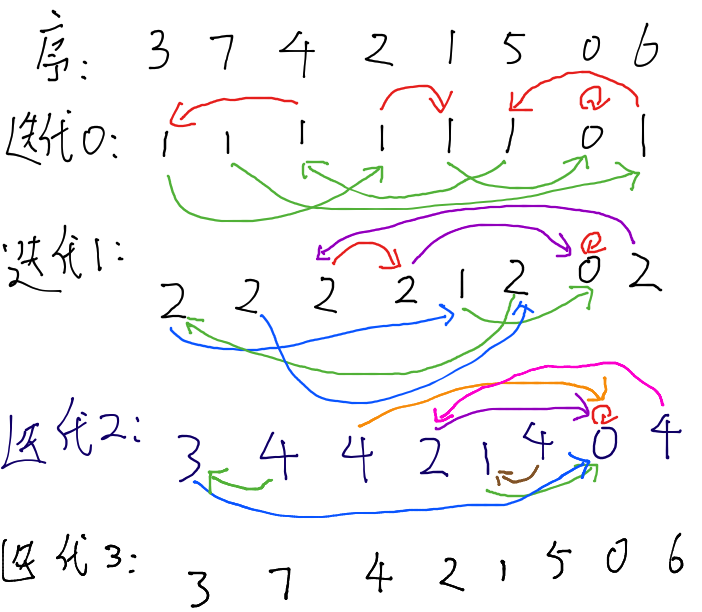 序: 3 7 4 2 1 5 0 6
迭代0: 1 1 1 1 1 1 0 1
迭代1: 2 2 2 2 1 2 0 2
迭代2: 3 4 4 2 1 4 0 4
迭代3: 3 7 4 2 1 5 0 6